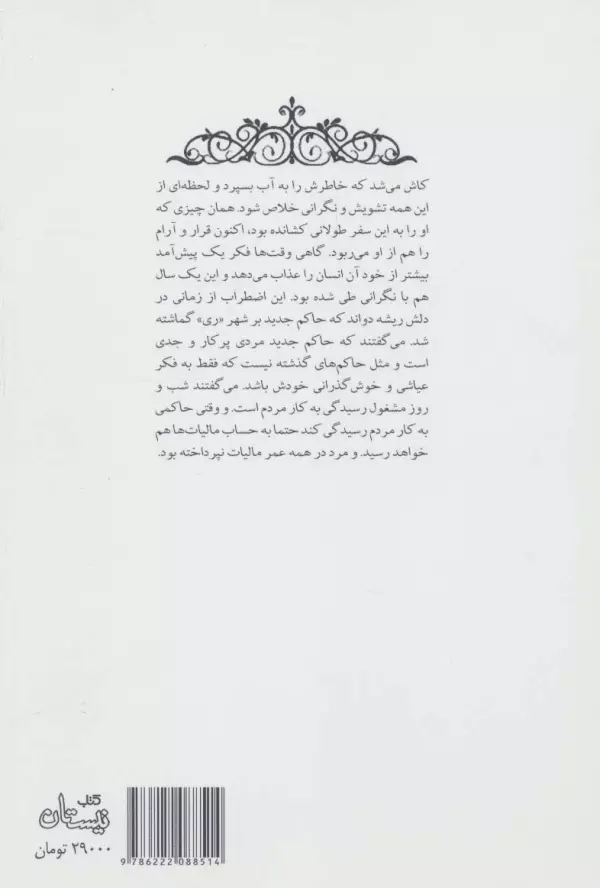 کاش می‌شد که خاطرش را به آب بسپرد و لحظه‌ای از
این همه تشویش و نگرانی خلاص شود. همان چیزی که
او را به این سفر طولانی کشانده بود، اکنون قرار و آرام
را هم از او می‌ربود. گاهی وقت‌ها فکر یک پیش‌آمد
بیشتر از خود آن انسان را عذاب می‌دهد و این یک سال
هم با نگرانی طی شده بود. این اضطراب از زمانی در
دلش ریشه دواند که حاکم جدید بر شهر «ری» گماشته
شد. می‌گفتند که حاکم جدید مردی پرکار و جدی
است و مثل حاکم‌های گذشته نیست که فقط به فکر
عیاشی و خوش‌گذرانی خودش باشد. می‌گفتند شب و
روز مشغول رسیدگی به کار مردم است. و وقتی حاکمی
به کار مردم رسیدگی کند حتما به حساب مالیات‌ها هم
خواهد رسید. و مرد در همه عمر مالیات نپرداخته بود.
کتاب
نیستان
۲۹۰۰۰ تومان
9 786222 088514